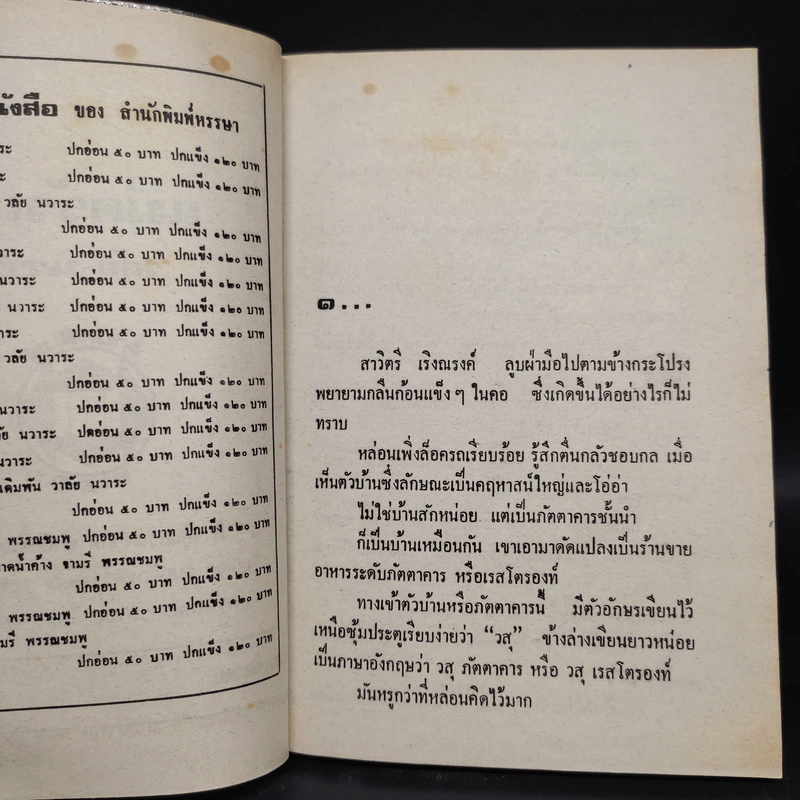 ของ สำนักพิมพ์หรรษา
ปกอ่อน ๕๐ บาท ปกแข็ง ๑๒๐ บาท
ปกอ่อน ๕๐ บาท ปกแข็ง ๑๒๐ บาท
วลัย นวาระ
ปกอ่อน ๕๐ บาท ปกแข็ง ๑๒๐ บาท
ปกอ่อน ๕๐ บาท ปกแข็ง ๑๒๐ บาท
นวาระ ปกอ่อน ๕๐ บาท ปกแข็ง ๑๒๐ บาท
นวาระ ปกอ่อน ๕๐ บาท ปกแข็ง ๑๒๐ บาท
ปกอ่อน ๕๐ บาท ปกแข็ง ๑๒๐ บาท
วลัย นวาระ
ปกอ่อน ๕๐ บาท ปกแข็ง ๑๒๐ บาท
นวาระ ปกอ่อน ๕๐ บาท ปกแข็ง ๑๒๐ บาท
นวาระ ปกอ่อน ๕๐ บาท ปกแข็ง ๑๒๐ บาท
นวาระ ปกอ่อน ๕๐ บาท ปกแข็ง ๑๒๐ บาท
วาลัย นวาระ
ปกอ่อน ๕๐ บาท ปกแข็ง ๑๒๐ บาท
พรรณชมพู ปกอ่อน ๕๐ บาท ปกแข็ง ๑๒๐ บาท
จามรี พรรณชมพู
ปกอ่อน ๕๐ บาท ปกแข็ง ๑๒๐ บาท
พรรณชมพู ปกอ่อน ๕๐ บาท ปกแข็ง ๑๒๐ บาท
พรรณชมพู
ปกอ่อน ๕๐ บาท ปกแข็ง ๑๒๐ บาท
๑...
สาวิตรี เริงณรงค์ ลูบฝ่ามือไปตามข้างกระโปรง
พยายามกลืนก้อนแข็งๆ ในคอ ซึ่งเกิดขึ้นได้อย่างไรก็ไม่
ทราบ
หล่อนเพิ่งล็อครถเรียบร้อย รู้สึกตื่นกลัวชอบกล เมื่อ
เห็นตัวบ้านซึ่งลักษณะเป็นคฤหาสน์ใหญ่และโอ่อ่า
ไม่ใช่บ้านสักหน่อย แต่เป็นภัตตาคารชั้นนำ
ก็เป็นบ้านเหมือนกัน เขาเอามาดัดแปลงเป็นร้านขาย
อาหารระดับภัตตาคาร หรือเรสโตรองท์
ทางเข้าตัวบ้านหรือภัตตาคารนี้ มีตัวอักษรเขียนไว้
เหนือซุ้มประตูเรียบง่ายว่า “วสุ” ข้างล่างเขียนยาวหน่อย
เป็นภาษาอังกฤษว่า วสุ ภัตตาคาร หรือ วสุ เรสโตรองท์
มันหรูกว่าที่หล่อนคิดไว้มาก